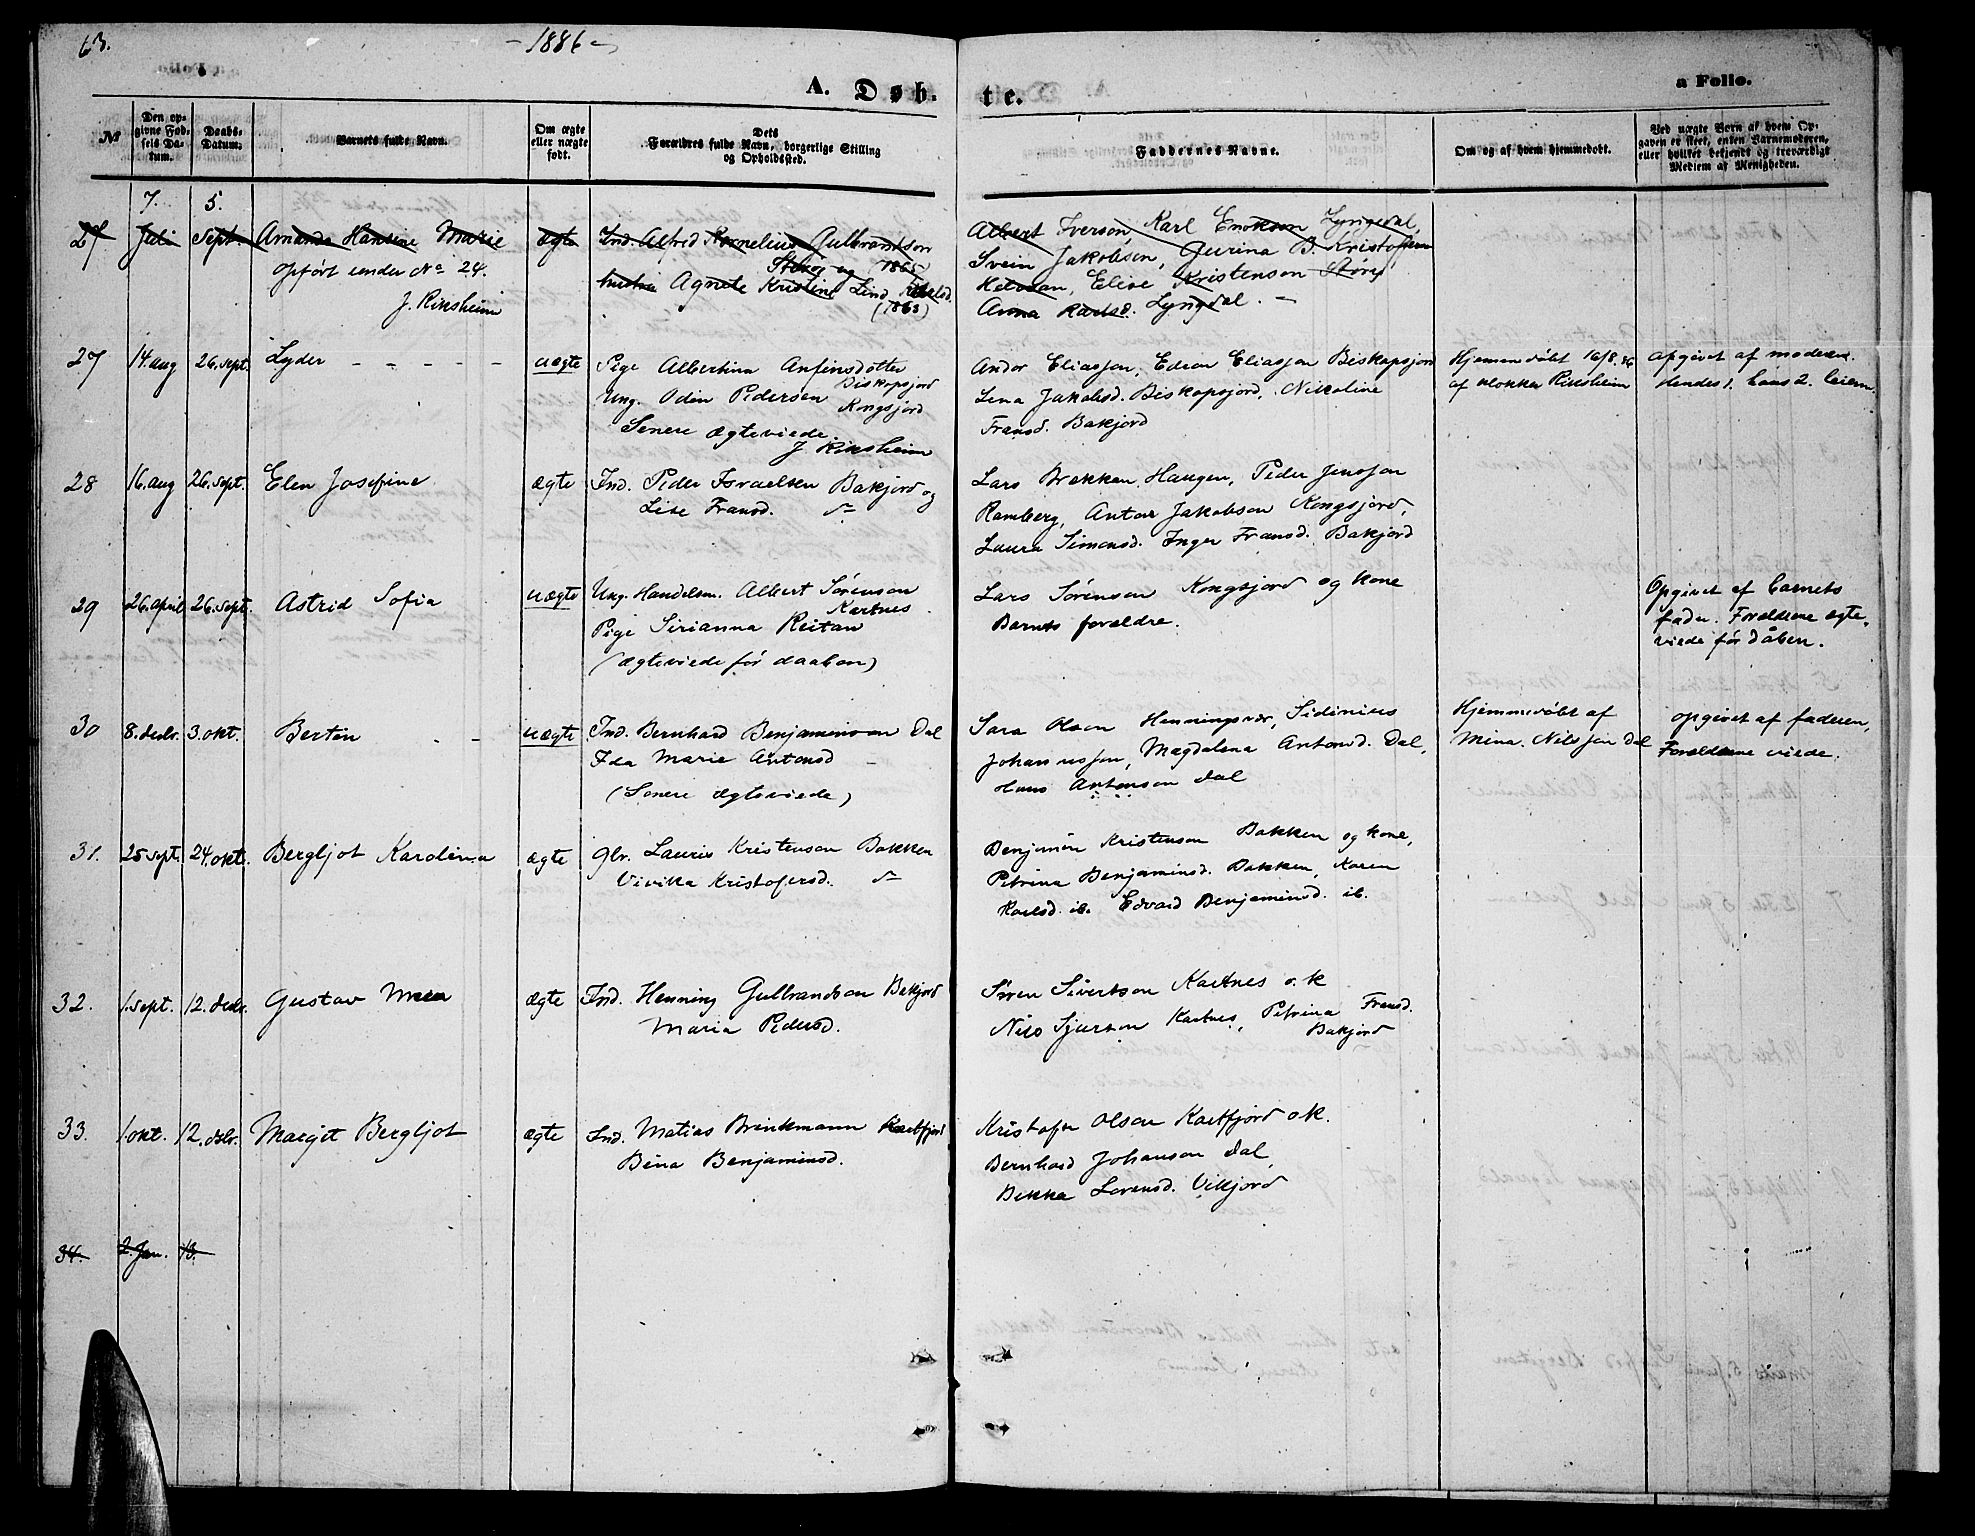 63.
-1886-
A. Døb-
te.
a Folio.
№
Den opgivne Fødsels Datum.
Daabs-Datum.
Barnets fulde Navn.
Om ægte eller uægte født.
Dets Forældres fulde Navn, borgerlige Stilling og Opholdssted.
Faddernes Navne.
Om og af hvem hjemmedøbt.
Ved uægte Børn af hvem Opgaven er skeet, enten Barnemoderen, eller hvilket bekjendt og troværdigt Medlem af Menigheden.
7. 5.
27 Juli Sept. Amanda Hansine Marie ægte Ind. Alfred Kornelius Gulbrandson
Albert Iverson, Karl Enokson Lyngedal,
opført under No 24.
J. Rinsheim
Støvej og (1865)
Svein Jakobsen, Gurina B. Kristofersen
hustru Agnete Kristine Lind
Elise Kristenson Støvej
(1863)
Anna Karlsd. Lyngdal.
27 14 aug 26. sept. Lyder - - - - uægte Pige Albertina Anfinsdotter
Biskopsjord
Ung. Odin Pedersen Kongsjord
Senere ægteviede.
J Rinsheim
Andor Eliassen, Edvon Eliassen Biskopsjord
Lina Jakobsd. Biskopsjord, Nikoline
Fransd. Bakjord
Hjemmedøbt 16/8. 86
af klokker Rinsheim
opgivet af moderen.
Hendes 1. hans 2. leierm.
28 16. aug 26. sept. Elen Josefine ægte Ind. Peder Israelsen Bakjord og
Lise Fransd.
Lars Brekken, Haugen, Peder Jenssen
Ramberg, Anton Jakobsen Kongsjord,
Laura Simonsd. Inger Fransd. Bakjord
29 26. april 26. sept. Astrid Sofia uægte Ung. Handelsm. Albert Sørenson
Kartnes.
Pige Sirianna Reitan
(ægteviede før daaben)
Lars Sørenson Kongsjord og kone
Barnets forældre.
Opgivet af barnets
fader. Forældrene ægte-
viede før dåben.
30 8. decbr. 3. okt. Bertin - - uægte Ind. Bernhard Benjaminson Dal
Ida Marie Antonsd -
(Senere ægteviede)
Sara Olsen Henningsvær, Sidinius
Johannssen, Magdalena Antonsd. Dal,
Hans Antonson Dal
Hjemmedøbt af
Mina. Nilssen Dal
opgivet af faderen,
Forældrene viede.
31. 25 sept. 24. okt. Bergljot Karolina ægte gbr. Lauris Kristenson Bakken
Vivika Kristofersd.
Benjamin Kristenson Bakken og kone,
Petrina Benjaminsd. Bakken, Karen
Karlsd. ib. Edvard Benjaminsd. ib.
32. 1. sept. 12. decbr. Gustav ægte Ind. Henning Gulbrandson Bakjord
Maria Pedersd.
Søren Sivertson Kartnes o. k
Nils Sjurson Kartnes, Petrina Fransd.
Bakjord
33. 1. okt. 12. dcbr. Margit Bergljot ægte Ind. Matias Brinkmann Kartfjord
Bina Benjaminsd.
Kristofer Olson Kartfjord o.k.
Bernhard Johanson Dal,
Bekka Lorensd. Vikjord
34. 2. Jan. 13.